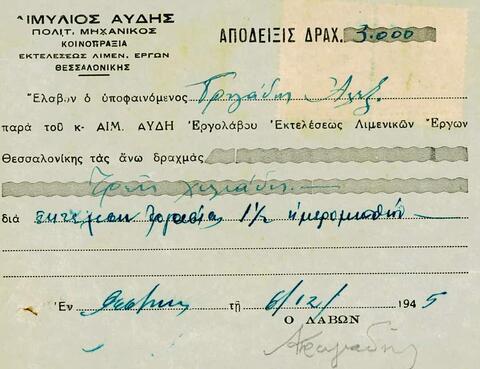 ΑΙΜΥΛΙΟΣ ΑΥΔΗΣ
ΠΟΛΙΤ. ΜΗΧΑΝΙΚΟΣ
ΚΟΙΝΟΠΡΑΞΙΑ
ΕΚΤΕΛΕΣΕΩΣ ΛΙΜΕΝ. ΕΡΓΩΝ
ΘΕΣΣΑΛΟΝΙΚΗΣ
ΑΠΟΔΕΙΞΙΣ ΔΡΑΧ. 3.000
Ἔλαβον ὁ ὑποφαινόμενος
παρά τοῦ κ. ΑΙΜ. ΑΥΔΗ Ἐργολάβου Ἐκτελέσεως Λιμενικῶν Ἔργων
Θεσσαλονίκης τάς ἄνω δραχμάς
Τρεῖς χιλιάδες
διά ἐκτέλεσιν ἐργασίας 1 1/2 ἡμερομισθίου
Ἐν Θεσ/νίκη τῇ 6/12/ 1945
Ο ΛΑΒΩΝ